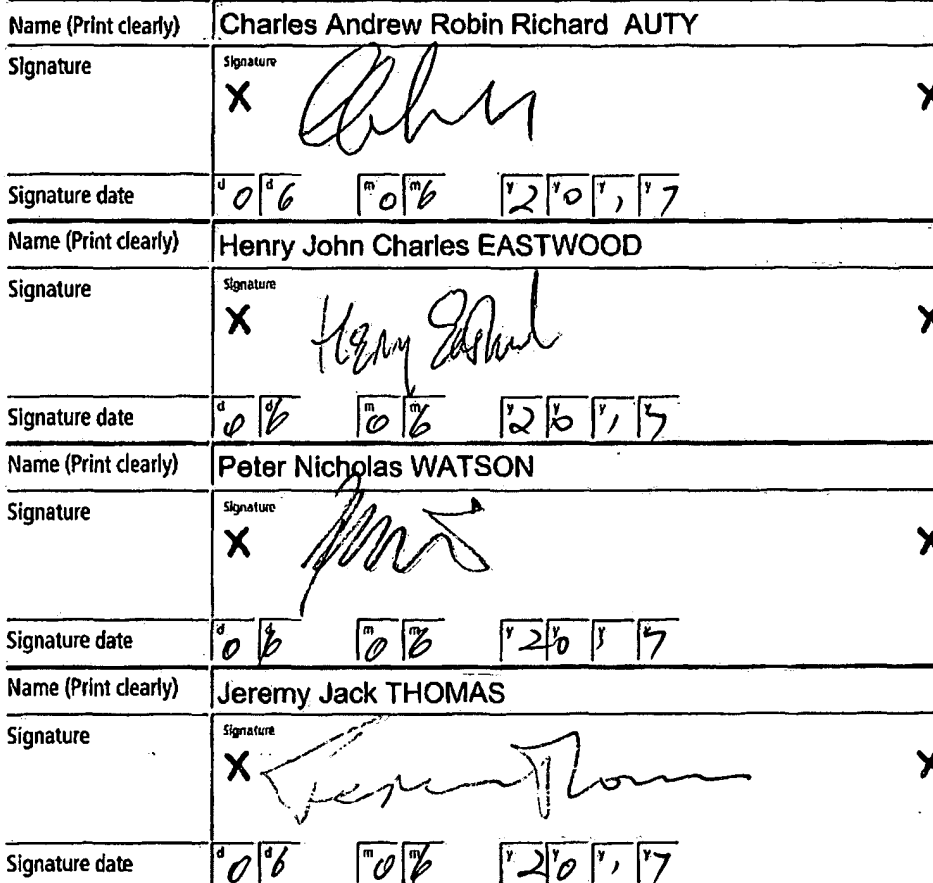 Name (Print clearly) Charles Andrew Robin Richard AUTY
Signature Signature
X X
Signature date d 0 d 6 m 0 m 6 y 2 y 0 y 1 y 7
Name (Print clearly) Henry John Charles EASTWOOD
Signature Signature
X Henry Eastwood X
Signature date d 0 d 6 m 0 m 6 y 2 y 0 y 1 y 7
Name (Print clearly) Peter Nicholas WATSON
Signature Signature
X X
Signature date d 0 d 6 m 0 m 6 y 2 y 0 y 1 y 7
Name (Print clearly) Jeremy Jack THOMAS
Signature Signature
X Jeremy Thomas X
Signature date d 0 d 6 m 0 m 6 y 2 y 0 y 1 y 7